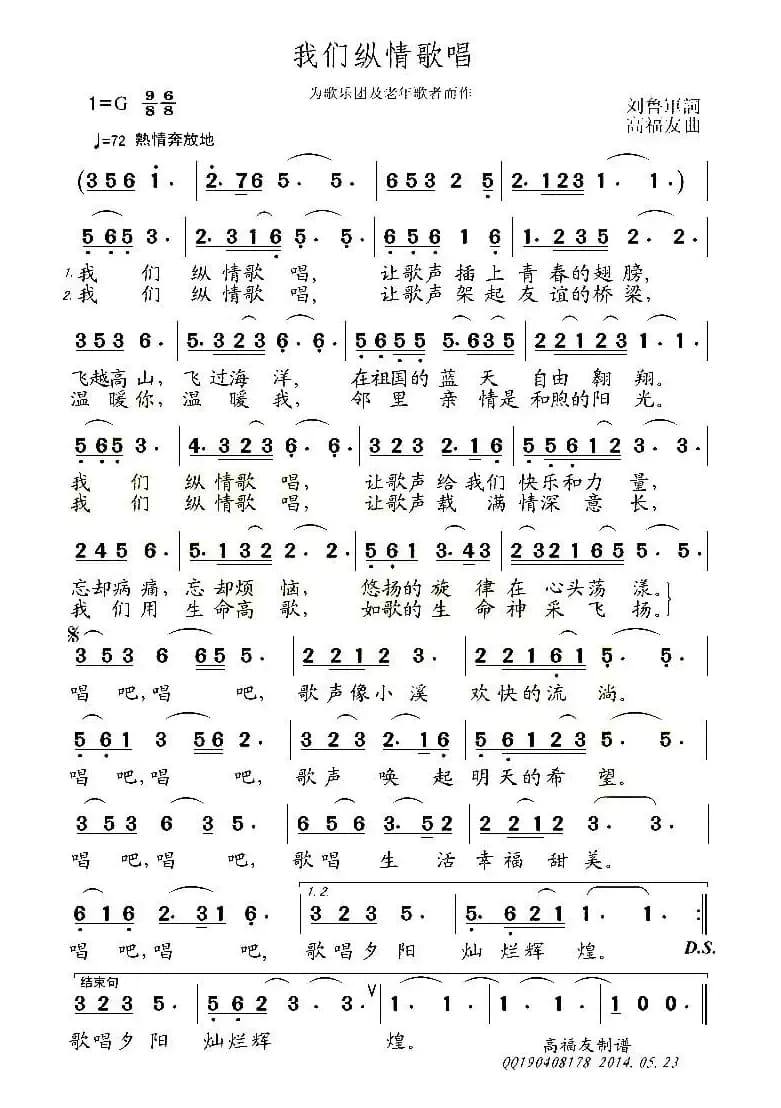 我们纵情歌唱
为歌乐团及老年歌者而作
1=G 9/8 6/8
刘鲁軍詞
高福友曲
♩=72 熱情奔放地
(3561̇. | 2̇.765.5. | 65325 | 2.1231.1.)
5653. | 2.3165.5. | 65616 | 1.2352.2.
1.我们纵情歌唱，让歌声插上青春的翅膀，
2.我们纵情歌唱，让歌声架起友谊的桥梁，
3536. | 5.3236.6. | 56555.635 | 221231.1.
飞越高山，飞过海洋，在祖国的蓝天自由翱翔。
温暖你，温暖我，邻里亲情是和煦的阳光。
5653. | 4.3236.6. | 3232.16 | 556123.3.
我们纵情歌唱，让歌声给我们快乐和力量，
我们纵情歌唱，让歌声载满情深意长，
2456. | 5.1322.2. | 5613.43 | 3221655.5.
忘却病痛，忘却烦恼，悠扬的旋律在心头荡漾。
我们用生命高歌，如歌的生命神采飞扬。
3536655. | 22123. | 221615.5.
唱吧，唱吧，歌声像小溪欢快的流淌。
5613562. | 3232.16 | 561235.5.
唱吧，唱吧，歌声唤起明天的希望。
31366635. | 6563.52 | 22123.3.
唱吧，唱吧，歌唱生活幸福甜美。
1.2.
6162.316. | 3235. | 5.6211.1. :||
唱吧，唱吧，歌唱夕阳灿烂辉煌。
D.S.
结束句
3235. | 5623.3. ∨ | 1.1. | 1.1. | 100 ||
歌唱夕阳灿烂辉煌。
高福友制谱
QQ190408178 2014.05.23